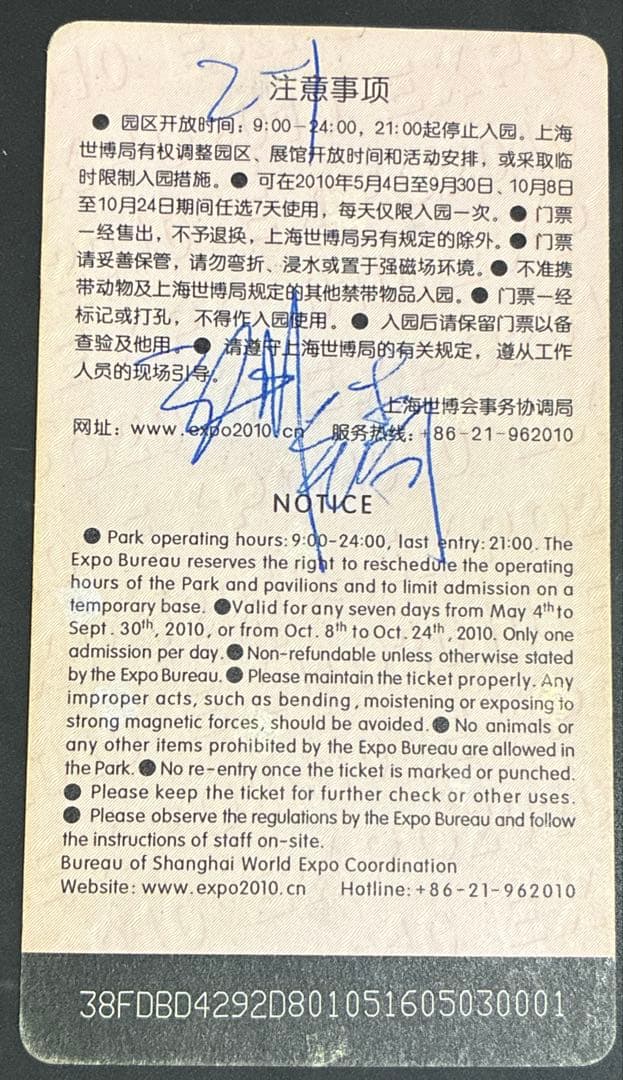 注意事项
● 园区开放时间：9:00-24:00，21:00起停止入园。上海
世博局有权调整园区、展馆开放时间和活动安排，或采取临
时限制入园措施。● 可在2010年5月4日至9月30日、10月8日
至10月24日期间任选7天使用，每天仅限入园一次。● 门票
一经售出，不予退换，上海世博局另有规定的除外。● 门票
请妥善保管，请勿弯折、浸水或置于强磁场环境。● 不准携
带动物及上海世博局规定的其他禁带物品入园。● 门票一经
标记或打孔，不得作入园使用。● 入园后请保留门票以备
查验及他用。● 请遵守上海世博局的有关规定，遵从工作
人员的现场引导。
上海世博会事务协调局
网址：www.expo2010.cn 服务热线：+86-21-962010
NOTICE
● Park operating hours:9:00-24:00, last entry:21:00. The
Expo Bureau reserves the right to reschedule the operating
hours of the Park and pavilions and to limit admission on a
temporary base. ●Valid for any seven days from May 4th to
Sept. 30th, 2010, or from Oct. 8th to Oct. 24th, 2010. Only one
admission per day.● Non-refundable unless otherwise stated
by the Expo Bureau. ● Please maintain the ticket properly. Any
improper acts, such as bending, moistening or exposing to
strong magnetic forces, should be avoided.● No animals or
any other items prohibited by the Expo Bureau are allowed in
the Park.● No re-entry once the ticket is marked or punched.
● Please keep the ticket for further check or other uses.
● Please observe the regulations by the Expo Bureau and follow
the instructions of staff on-site.
Bureau of Shanghai World Expo Coordination
Website: www.expo2010.cn Hotline:+86-21-962010
38FDBD4292D801051605030001